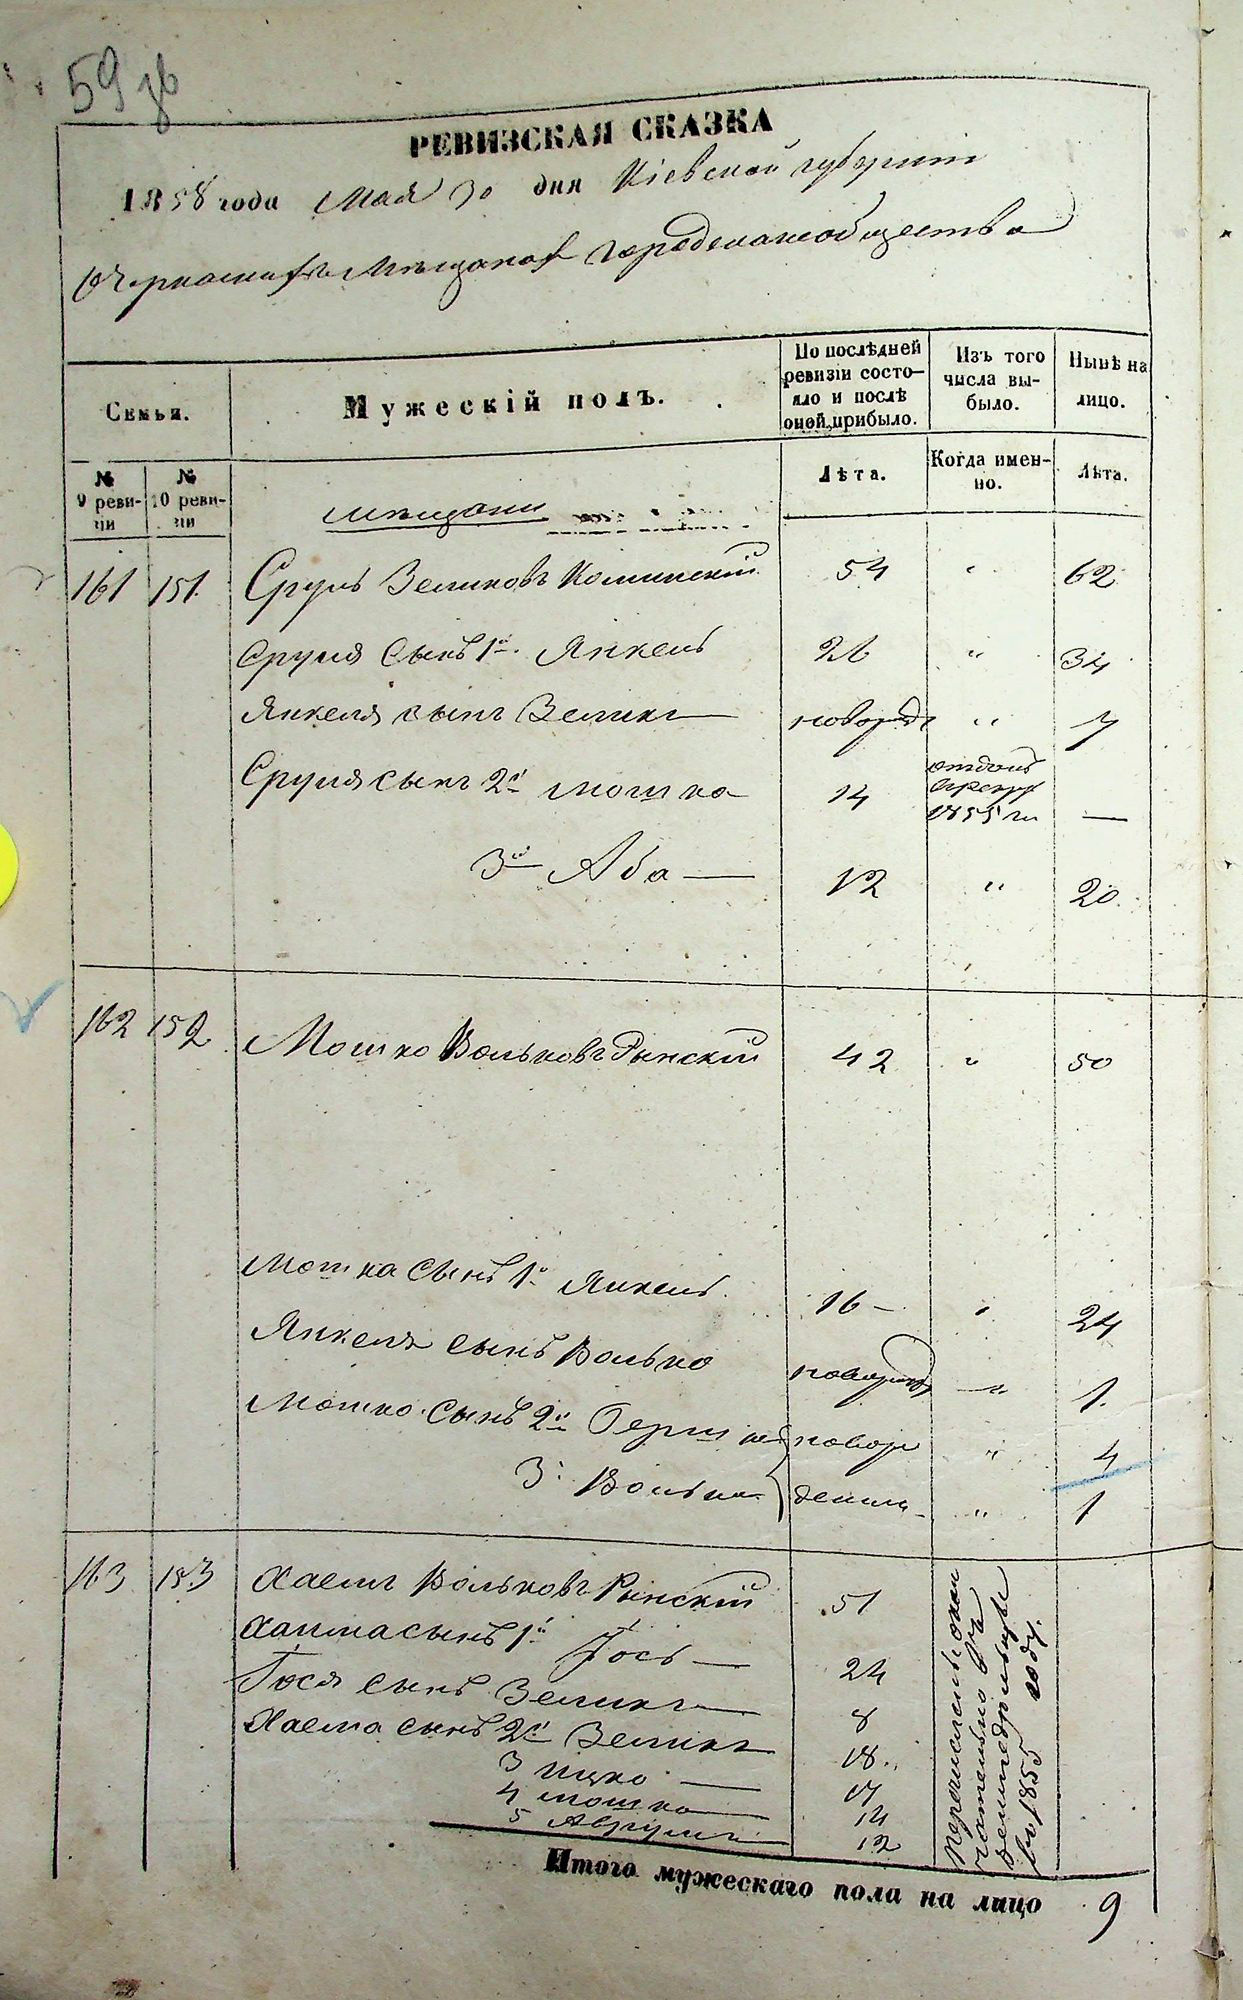 59 зв
РЕВИЗСКАЯ СКАЗКА
1858 года Мая 30 дня Кіевской губерніи
Мѣщанах городскаго общества
Семьи.
Мужескій полъ.
По послѣдней ревизіи состояло и послѣ оной прибыло.
Изъ того числа выбыло.
Нынѣ на лицо.
№ 9 ревизіи
№ 10 ревизіи
Лѣта.
Когда именно.
Лѣта.
мѣщани
161 151 Сруль Зеликовъ Коминскій 54 " 62
Сруля сынъ 1й Янкель 26 " 34
Янкеля сынъ Зеликъ новорожд " 7
Сруля сынъ 2й Мошко 14 1855 — 
3й Аба — 12 " 20
162 152 Мошко Вольковъ Рынскій 42 " 50
Мошка сынъ 1й Янкель 16 — " 24
Янкеля сынъ Волько новорожд " 1
Мошко сынъ 2й Гершко новоро " 4
3й Волько " 1
163 153 Хаемъ Вольковъ Рынскій 51
Хаима сынъ 1й Іось — 24
Іося сынъ Зеликъ 8
Хаема сынъ 2й Зеликъ 18
3 Ицко — 17
4 Мошко 14
5 Аврумъ 12
перечислены въ 1855 году.
Итого мужескаго пола на лицо 9